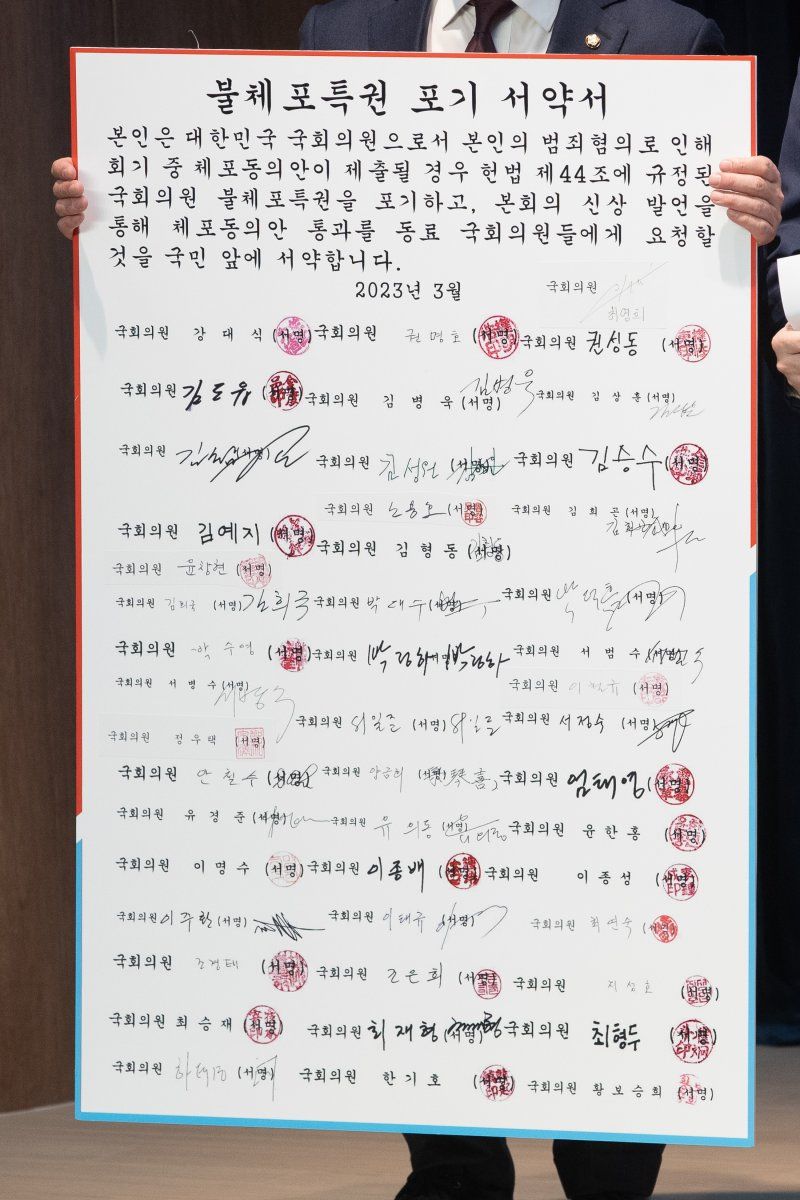 불체포특권 포기 서약서
본인은 대한민국 국회의원으로서 본인의 범죄혐의로 인해
회기 중 체포동의안이 제출될 경우 헌법 제44조에 규정된
국회의원 불체포특권을 포기하고, 본회의 신상 발언을
통해 체포동의안 통과를 동료 국회의원들에게 요청할
것을 국민 앞에 서약합니다.
2023년 3월
국회의원
최영희
국회의원 강대식 (서명) 국회의원 권명호 (서명) 국회의원 권성동 (서명)
국회의원 김도읍 (서명) 국회의원 김병욱 (서명) 김병욱 국회의원 김상훈 (서명)
국회의원 국회의원 김성원 (서명) 국회의원 김승수 (서명)
국회의원 노용호 (서명) 국회의원 김희곤 (서명)
국회의원 김예지 (서명) 국회의원 김형동 (서명)
국회의원 윤창현 (서명)
국회의원 김희국 (서명) 김희국 국회의원 박대수 (서명) 국회의원 (서명)
국회의원 박수영 (서명) 국회의원 박정하 (서명) 박정하 국회의원 서범수 (서명)
국회의원 서병수 (서명) 서병수 국회의원 이철규 (서명)
국회의원 정우택 (서명) 국회의원 서일준 (서명) 서일준 국회의원 서정숙 (서명)
국회의원 안철수 (서명) 국회의원 양금희 (서명) 국회의원 엄태영 (서명)
국회의원 유경준 (서명) 국회의원 유의동 (서명) 국회의원 윤한홍 (서명)
국회의원 이명수 (서명) 국회의원 이종배 (서명) 국회의원 이종성 (서명)
국회의원 이주환 (서명) 국회의원 이태규 (서명) 국회의원 최연숙 (서명)
국회의원 조경태 (서명) 국회의원 조은희 (서명) 국회의원 지성호 (서명)
국회의원 최승재 (서명) 국회의원 최재형 (서명) 국회의원 최형두 (서명)
국회의원 하태경 (서명) 국회의원 한기호 (서명) 국회의원 황보승희 (서명)